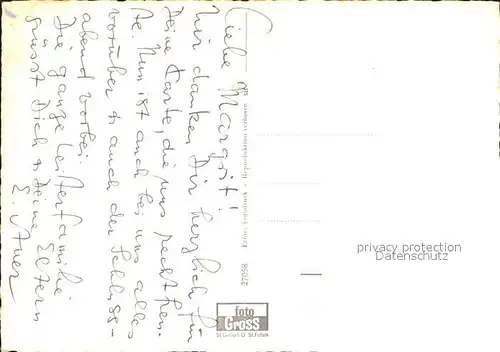 Liebe Margrit!
Wir danken Dir herzlich für
Deine Karte, die uns recht freu-
te. Nun ist auch bei uns alles
vorüber & auch der Schluss-
abend vorbei.
Die ganze Leiterfamilie
grüsst Dich & Deine Eltern
E. Auer
27058 Echte Fotodruck - Reproduktion verboten
privacy protection
Datenschutz
foto
GROSS
St. Gallen O St. Fiden